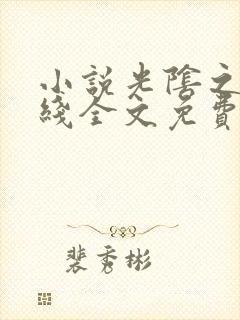 小說光陰之
綫全文免費
裴秀彬